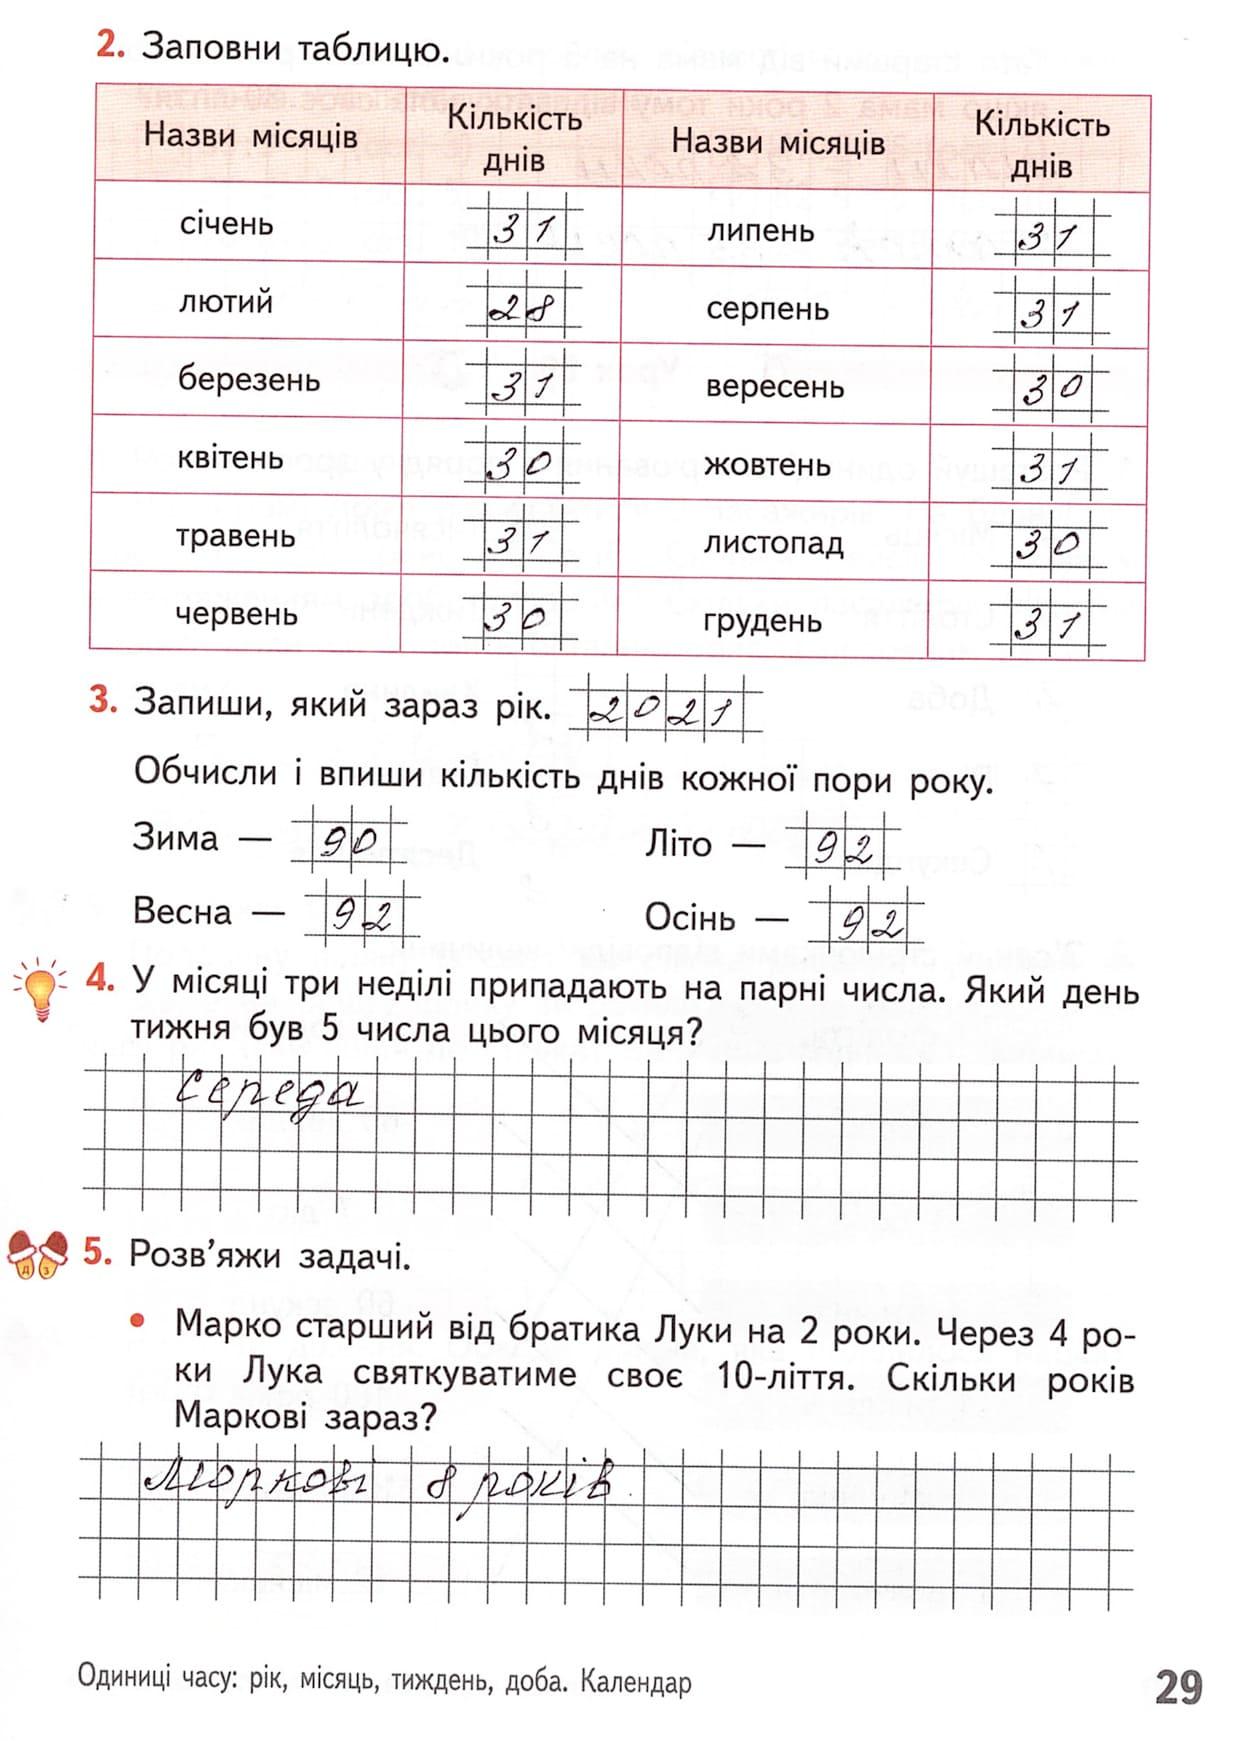 2. Заповни таблицю.
Назви місяців Кількість днів Назви місяців Кількість днів
січень 31 липень 31
лютий 28 серпень 31
березень 31 вересень 30
квітень 30 жовтень 31
травень 31 листопад 30
червень 30 грудень 31
3. Запиши, який зараз рік. 2021
Обчисли і впиши кількість днів кожної пори року.
Зима — 90 Літо — 92
Весна — 92 Осінь — 92
4. У місяці три неділі припадають на парні числа. Який день
тижня був 5 числа цього місяця?
середа
5. Розв’яжи задачі.
• Марко старший від братика Луки на 2 роки. Через 4 ро-
ки Лука святкуватиме своє 10-ліття. Скільки років
Маркові зараз?
Маркові 8 років.
Одиниці часу: рік, місяць, тиждень, доба. Календар
29